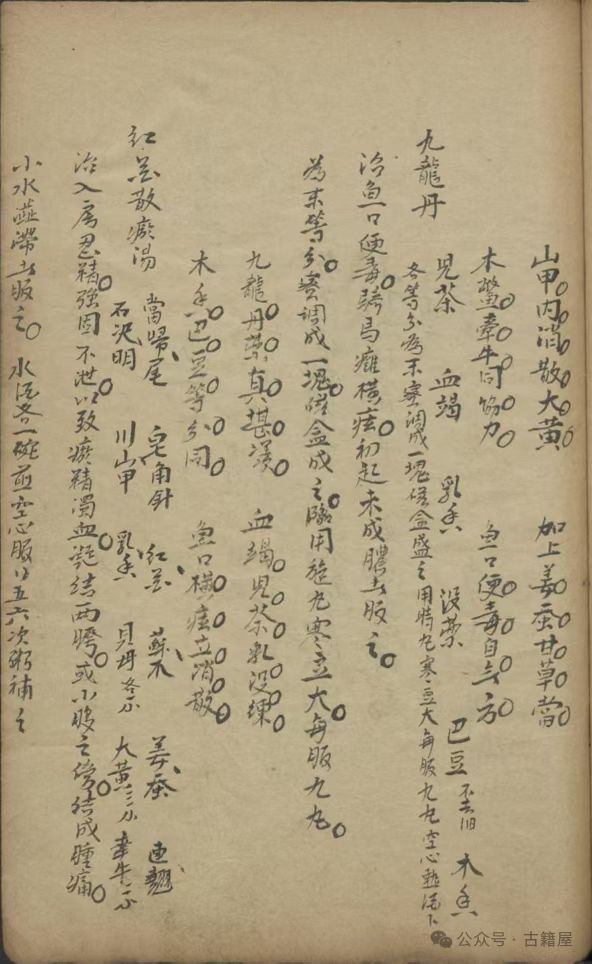 山甲内消散大黄 加上姜蚕甘草當
木鱉牽牛同協力 魚口便毒自令方
九龍丹 児茶 血竭 乳香 没藥 巴豆不去油 木香
各等分為末蜜調成一塊磁盒盛之用時丸寒豆大每服九丸空心熱酒下
治魚口便毒騎馬癰橫痃初起未成膿者服之
為末等分蜜調成一塊磁盒成之臨用旋丸寒豆大每服九丸
九龍丹藥真堪漢 血竭児茶乳没練
木香巴豆等分同 魚口橫痃立消散
紅花散瘀湯 當歸尾 皂角針 紅花 蘇木 姜蚕 連翹
石决明 川山甲 乳香 貝母各 大黄三 牽牛二
治入房忍精強固不泄以致瘀精濁血凝结两胯或小腹之傍结成腫痛
小水澁滞者服之 水酒各一碗煎空心服以五六次粥補之
公众号·古籍屋